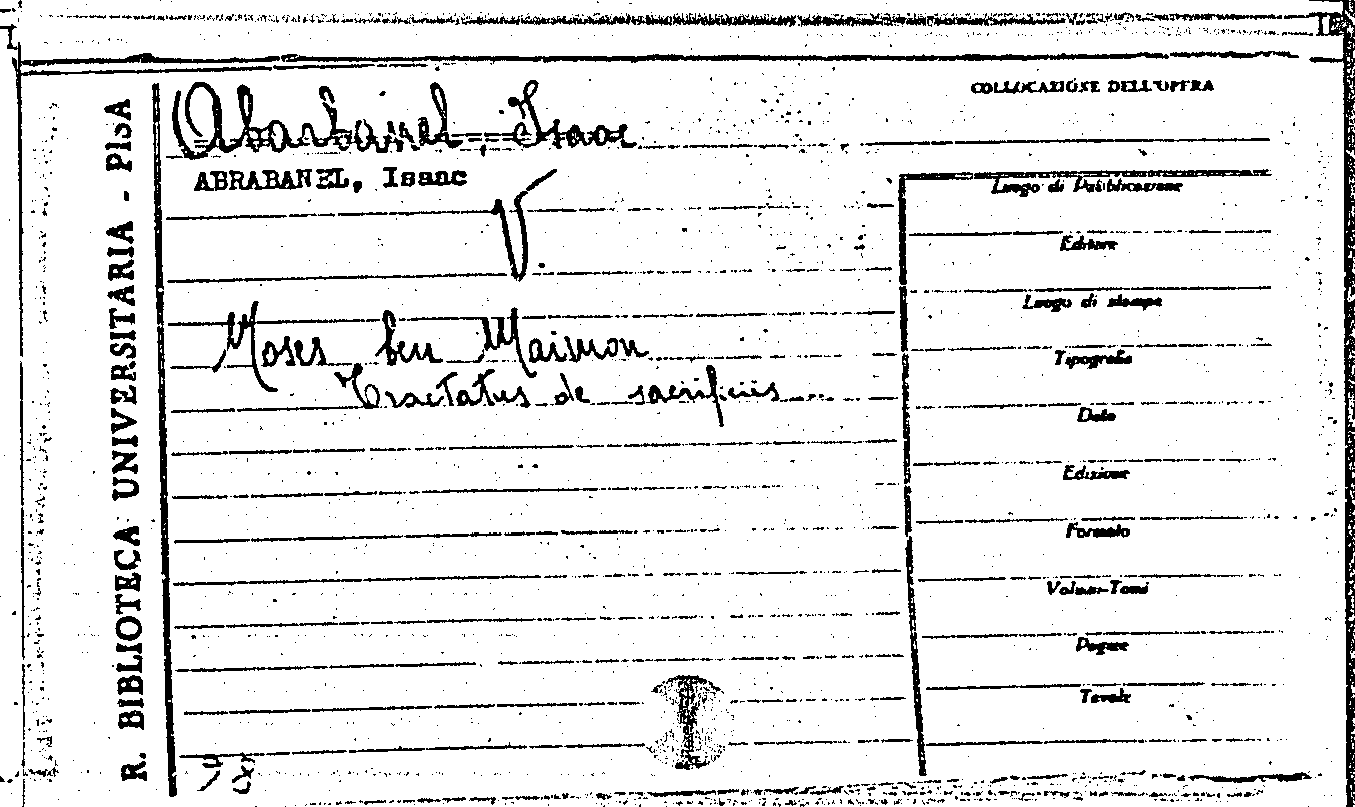 COLLOCAZIONE DELL'OPERA
R. BIBLIOTECA UNIVERSITARIA - PISA
Abarbanel, Isaac
ABRABANEL, Isaac
V.
Moses ben Maimon
Tractatus de sacrificiis...
Luogo di Pubblicazione
Editore
Luogo di stampa
Tipografia
Data
Edizione
Formato
Volumi-Tomi
Pagine
Tavole